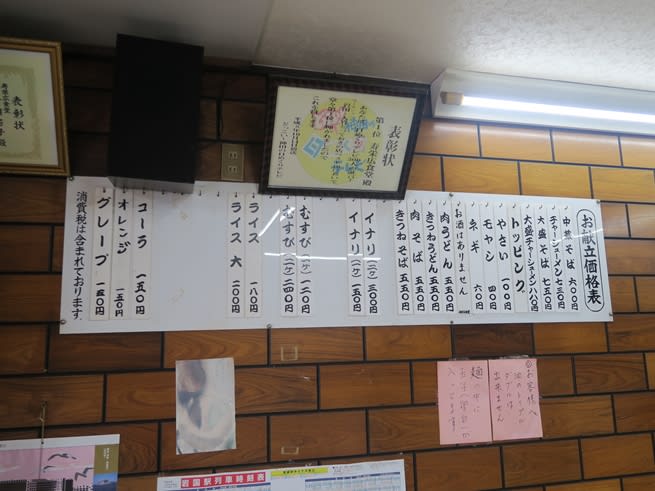 お献立価格表
中華そば 六〇〇円
チャーシューメン 七三〇円
大盛そば 七五〇円
大盛チャーシューメン 八八〇円
トッピング
やさい 一〇〇円
モヤシ 四〇円
ネギ 六〇円
お酒はありません
肉うどん 五五〇円
きつねうどん 五五〇円
肉そば 五五〇円
きつねそば 五五〇円
イナリ(二ケ) 三〇〇円
イナリ(一ケ) 一五〇円
むすび(一ケ) 一二〇円
むすび(二ケ) 二四〇円
ライス 一八〇円
ライス大 二〇〇円
コーラ 一五〇円
オレンジ 一五〇円
グレープ 一五〇円
消費税は含まれております。
表彰状
第1位 寿栄広食堂殿
表彰状
寿栄広食堂
お客様へ
ダブルは
出来ません
麺の中に
入ってます
岩国駅列車時刻表